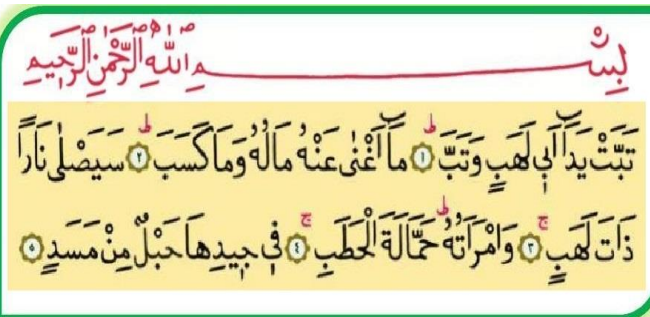 بِسْمِ اللّٰهِ الرَّحْمٰنِ الرَّحِيمِ
تَبَّتْ يَدَٓا اَبٖى لَهَبٍ وَتَبَّ ﴿١﴾ ط مَٓا اَغْنٰى عَنْهُ مَالُهُ وَمَا كَسَبَ ﴿٢﴾ ط سَيَصْلٰى نَارًا
ذَاتَ لَهَبٍ ﴿٣﴾ ج وَامْرَاَتُهُ ط حَمَّالَةَ الْحَطَبِ ﴿٤﴾ ج فٖى جٖيدِهَا حَبْلٌ مِنْ مَسَدٍ ﴿٥﴾